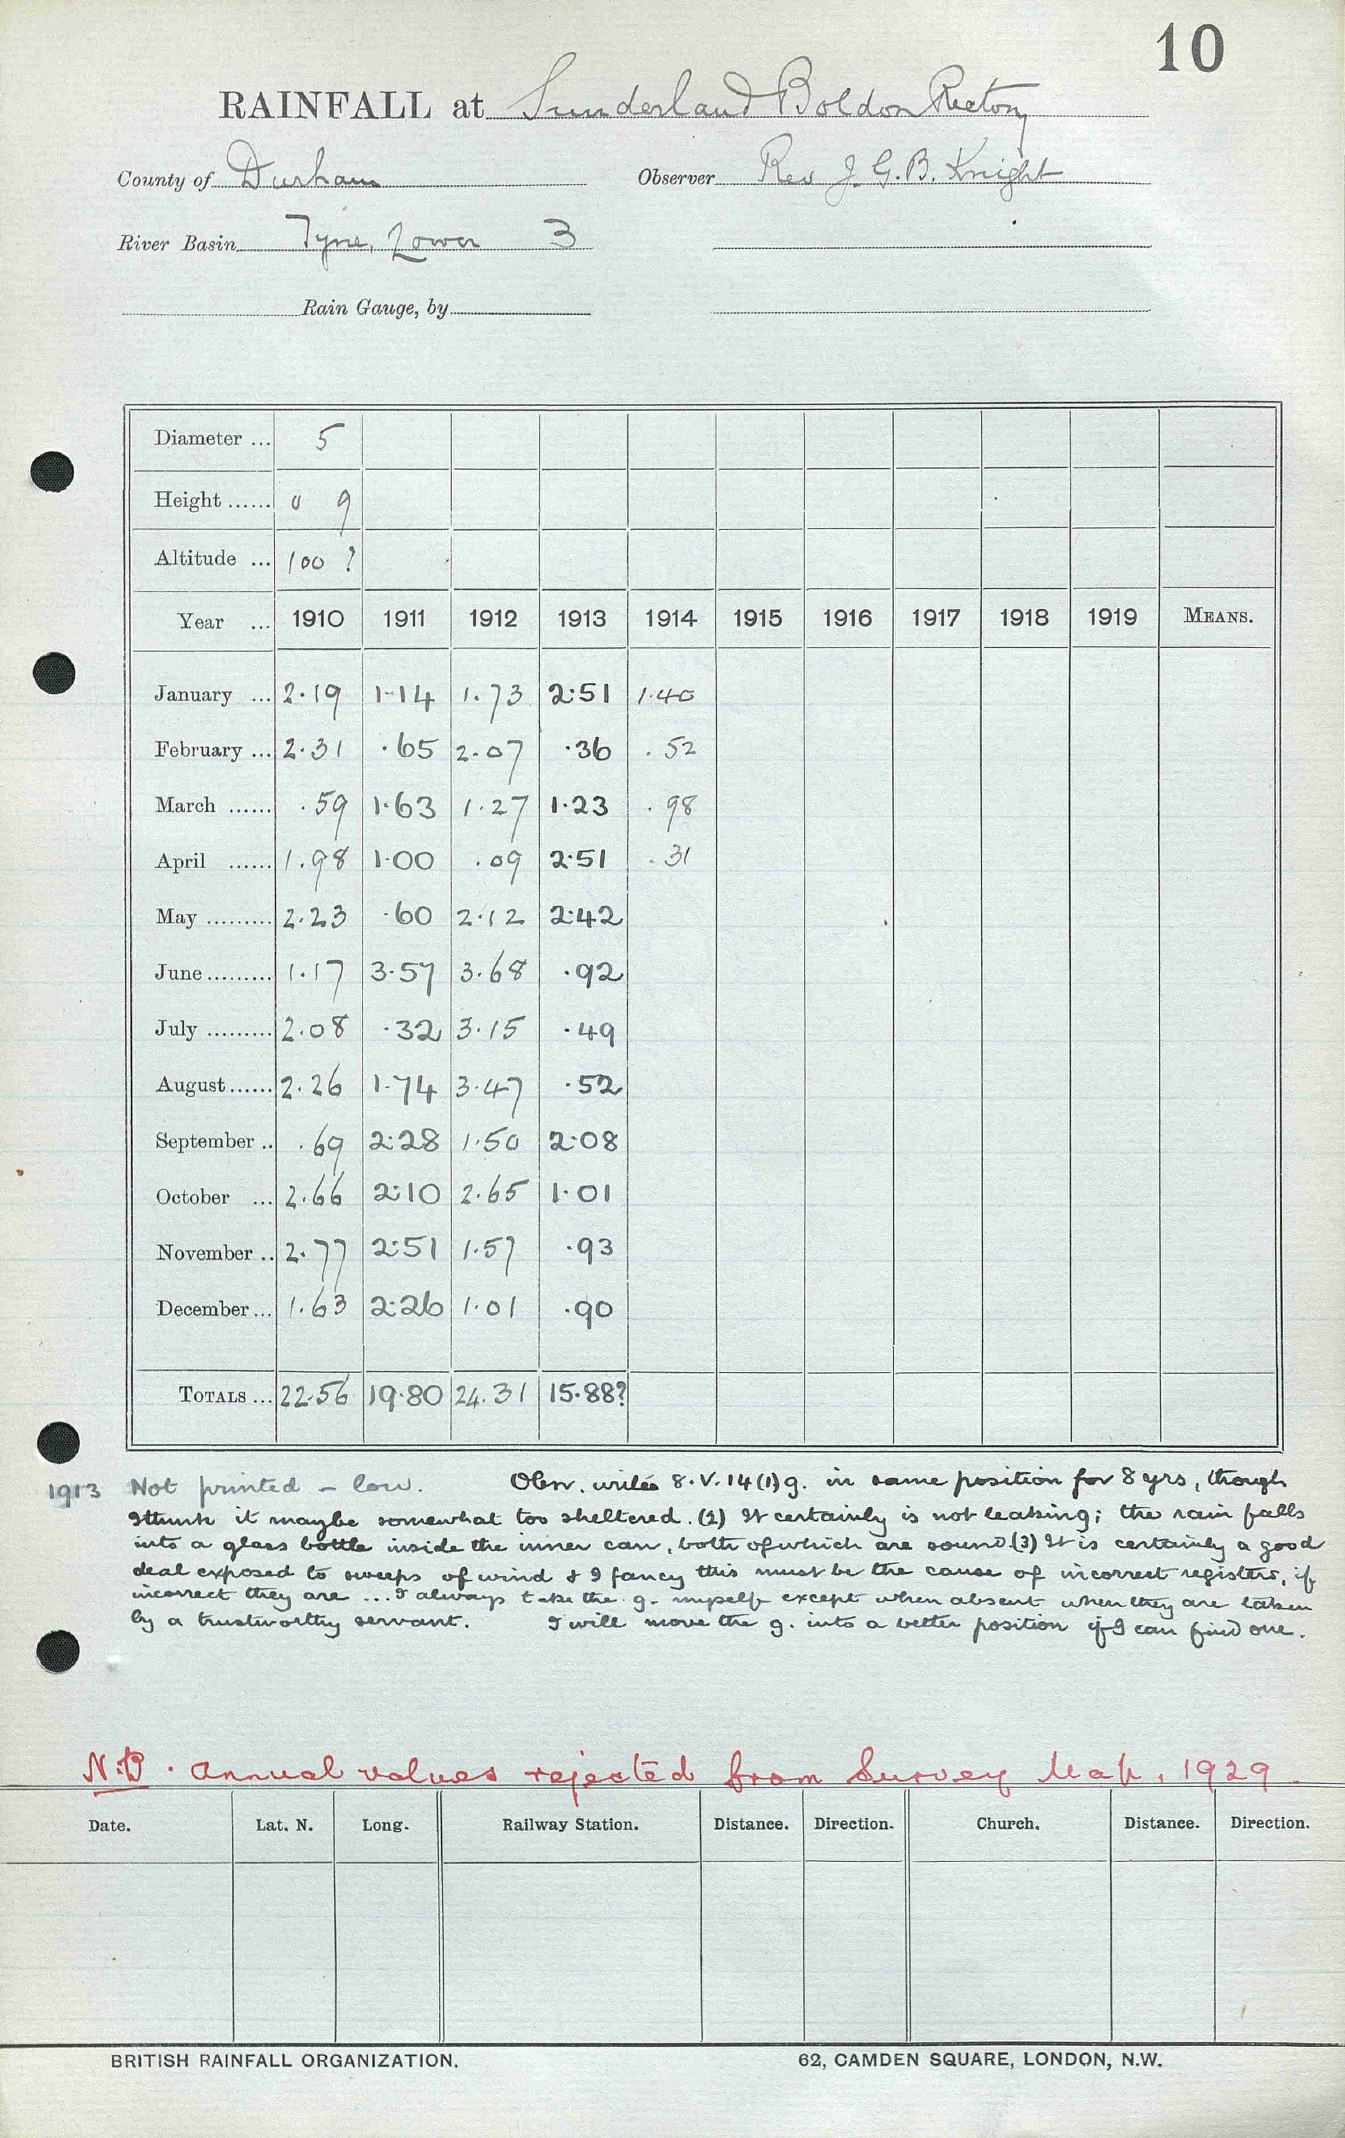 10
RAINFALL at Sunderland Boldon Rectory
County of Durham Observer Rev J. G. B. Knight
River Basin Tyne, Lower 3
Rain Gauge, by
Diameter ... 5
Height ...... 0 9
Altitude ... 100 ?
Year ... 1910 1911 1912 1913 1914 1915 1916 1917 1918 1919 MEANS.
January ... 2.19 1.14 1.73 2.51 1.40
February ... 2.31 .65 2.07 .36 .52
March ...... .59 1.63 1.27 1.23 .98
April ...... 1.98 1.00 .09 2.51 .31
May ......... 2.23 .60 2.12 2.42
June ......... 1.17 3.57 3.68 .92
July ......... 2.08 .32 3.15 .49
August ...... 2.26 1.74 3.47 .52
September .. .69 2.28 1.50 2.08
October ... 2.66 2.10 2.65 1.01
November .. 2.77 2.51 1.57 .93
December ... 1.63 2.26 1.01 .90
TOTALS ... 22.56 19.80 24.31 15.88?
1913 Not printed - low. Obsr. writes 8.V.14 (1) g. in same position for 8 yrs, though
I think it maybe somewhat too sheltered. (2) It certainly is not leaking; the rain falls
into a glass bottle inside the inner can, both of which are sound. (3) It is certainly a good
deal exposed to sweeps of wind & I fancy this must be the cause of incorrect registers, if
incorrect they are ... I always take the g. myself except when absent when they are taken
by a trustworthy servant. I will move the g. into a better position if I can find one.
N.B. Annual values rejected from Survey Map, 1929.
Date. Lat. N. Long. Railway Station. Distance. Direction. Church. Distance. Direction.
BRITISH RAINFALL ORGANIZATION. 62, CAMDEN SQUARE, LONDON, N.W.